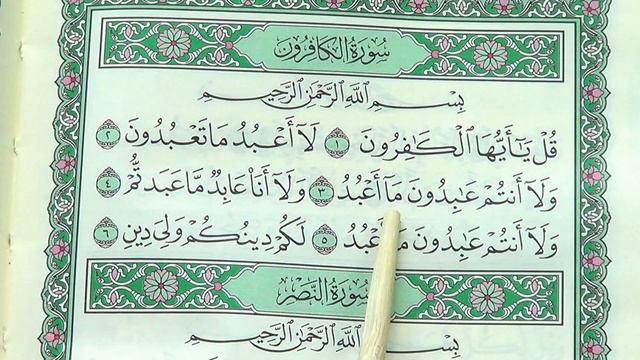 سُورَةُ الكَافِرُونَ
بِسْمِ ٱللَّهِ ٱلرَّحْمَٰنِ ٱلرَّحِيمِ
قُلْ يَٰٓأَيُّهَا ٱلْكَٰفِرُونَ ١ لَآ أَعْبُدُ مَا تَعْبُدُونَ ٢
وَلَآ أَنتُمْ عَٰبِدُونَ مَآ أَعْبُدُ ٣ وَلَآ أَنَا۠ عَابِدٌ مَّا عَبَدتُّمْ ٤
وَلَآ أَنتُمْ عَٰبِدُونَ مَآ أَعْبُدُ ٥ لَكُمْ دِينُكُمْ وَلِىَ دِينِ ٦
سُورَةُ النَّصْرِ
بِسْمِ ٱللَّهِ ٱلرَّحْمَٰنِ ٱلرَّحِيمِ